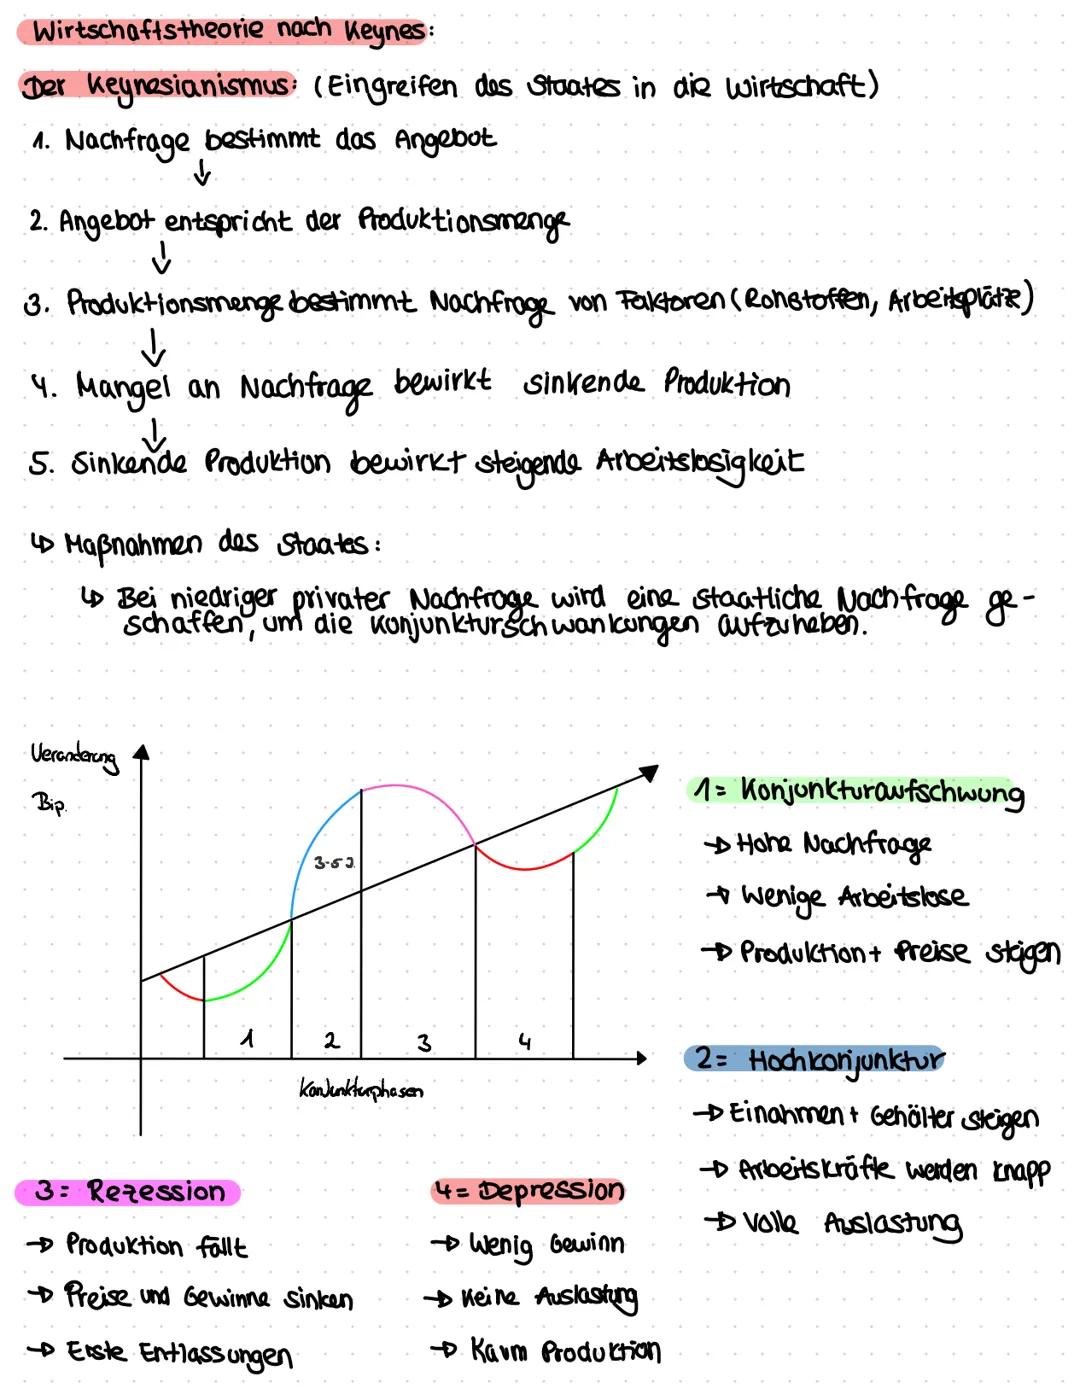 Wirtschaftstheorie nach Keynes:
Der Keynesianismus: (Eingreifen des Staates in die Wirtschaft)
1. Nachfrage bestimmt das Angebot
↓
2. Angebot entspricht der Produktionsmenge
↓
3. Produktionsmenge bestimmt Nachfrage von Faktoren (Rohstoffen, Arbeitsplätze)
↓
4. Mangel an Nachfrage bewirkt sinkende Produktion
↓
5. Sinkende Produktion bewirkt steigende Arbeitslosigkeit
↳ Maßnahmen des Staates:
↳ Bei niedriger privater Nachfrage wird eine staatliche Nachfrage ge-
schaffen, um die Konjunkturschwankungen aufzuheben.
Veränderung
Bip.
3-5J.
1
2
3
4
Konjunkturphasen
1= Konjunkturaufschwung
→ Hohe Nachfrage
→ Wenige Arbeitslose
→ Produktion + Preise steigen
2= Hochkonjunktur
→ Einahmen + Gehälter steigen
→ Arbeitskräfte werden knapp
→ Volle Auslastung
3= Rezession
→ Produktion fällt
→ Preise und Gewinne sinken
→ Erste Entlassungen
4= Depression
→ Wenig Gewinn
→ Keine Auslastung
→ Kaum Produktion